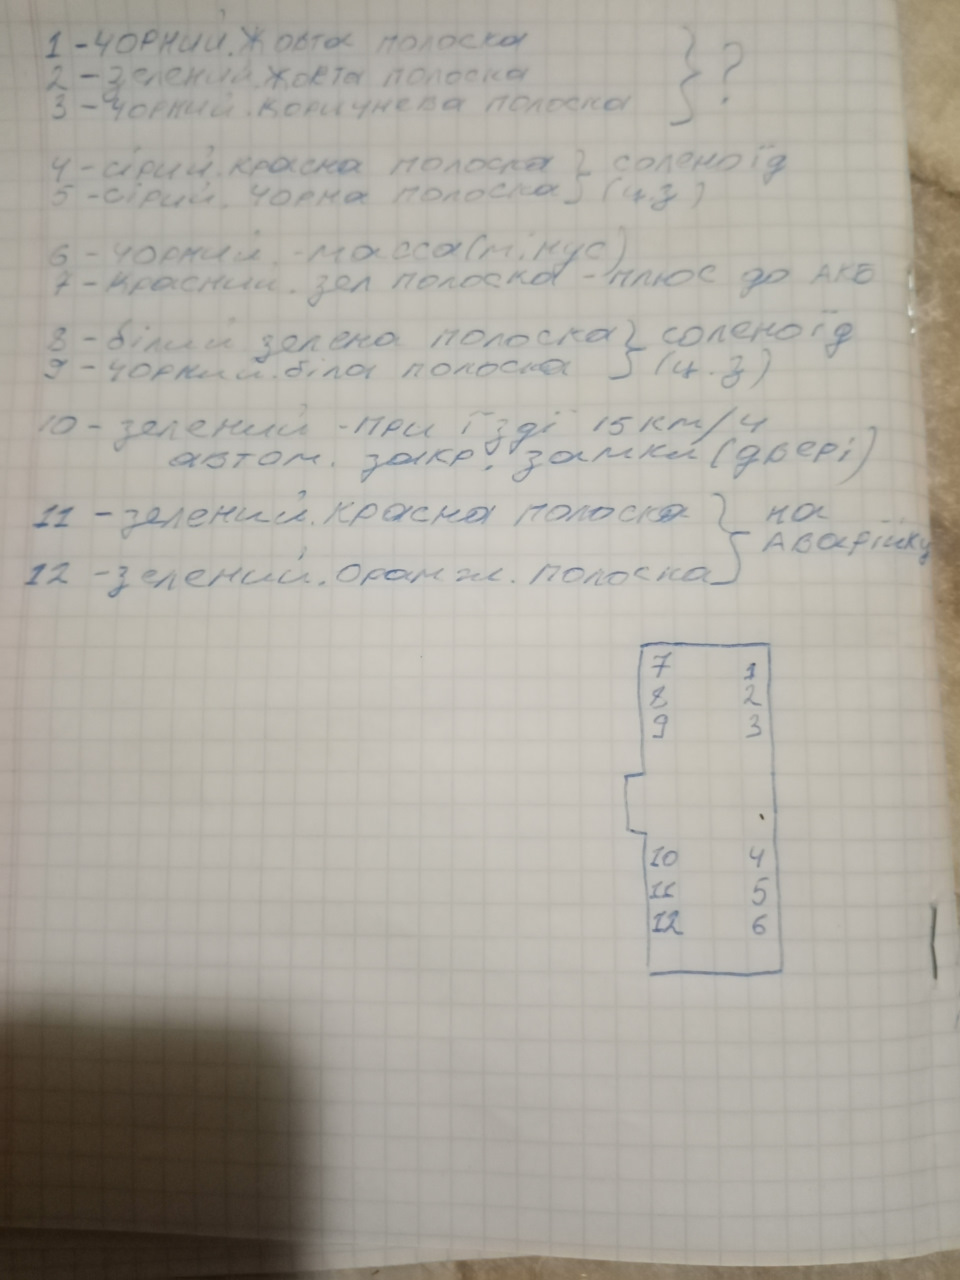 1 - чорний. жовта полоска
2 - зелений. жовта полоска
3 - чорний. коричнева полоска
?
4 - сірий. красна полоска
5 - сірий. чорна полоска
соленоїд
(ц.з)
6 - чорний. - масса (мінус)
7 - красний. зел полоска - плюс до АКБ
8 - білий зелена полоска
9 - чорний. біла полоска
соленоїд
(ц.з)
10 - зелений - при їзді 15 км/ч
автом. закр. замки (двері)
11 - зелений. красна полоска
12 - зелений. оранж. полоска
на
аварійку
7 1
8 2
9 3
10 4
11 5
12 6